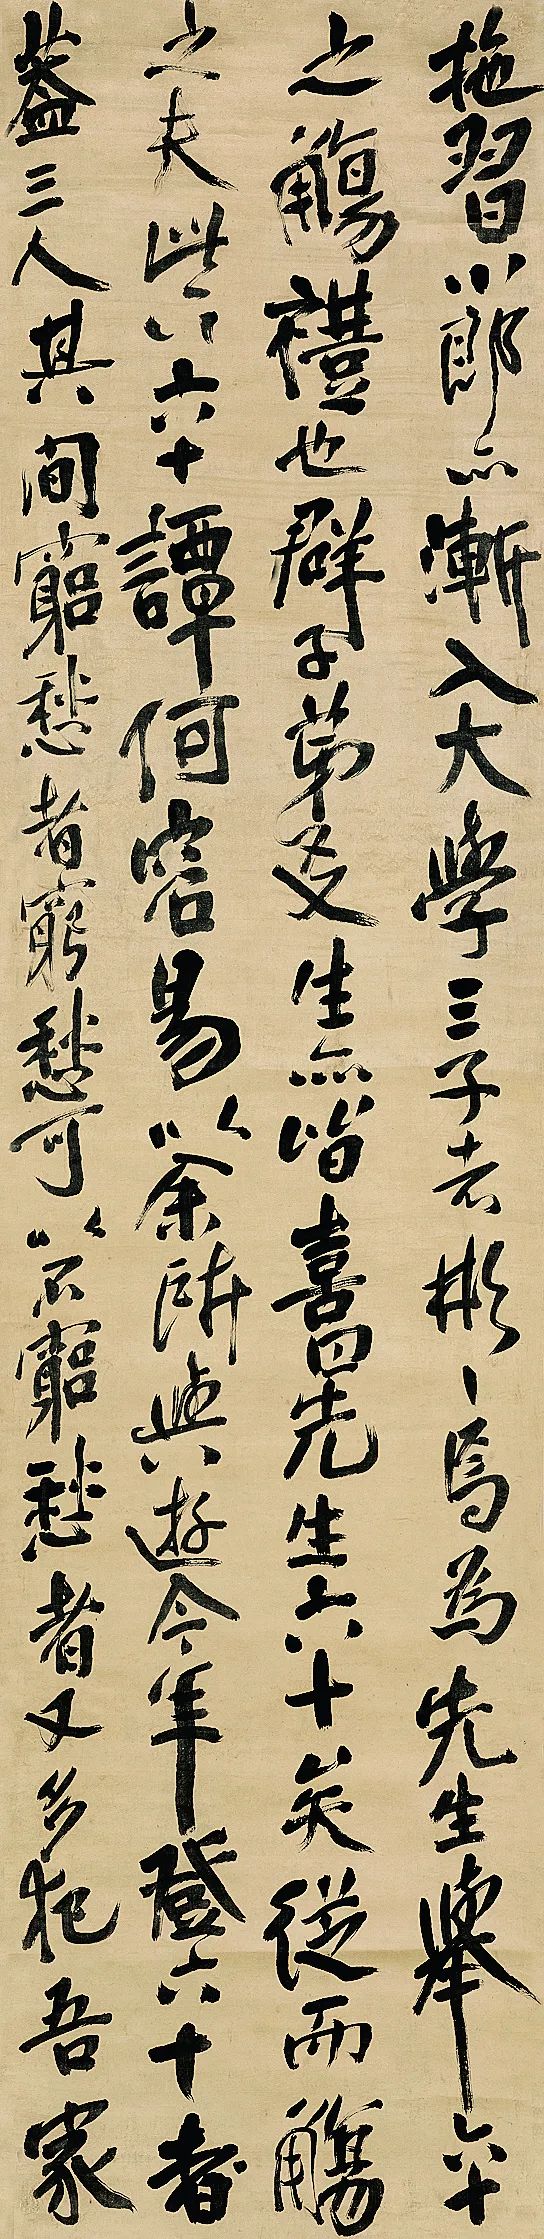 拖習小郎亦漸入大學三子者彬〻焉為先生舉六十
之觴禮也群子弟友生亦皆喜曰先生六十矣從而觴
之夫此六十譚何容易以余所與遊今年登六十者
葢三人其間窮愁者窮愁可以不窮愁者又多犯吾家